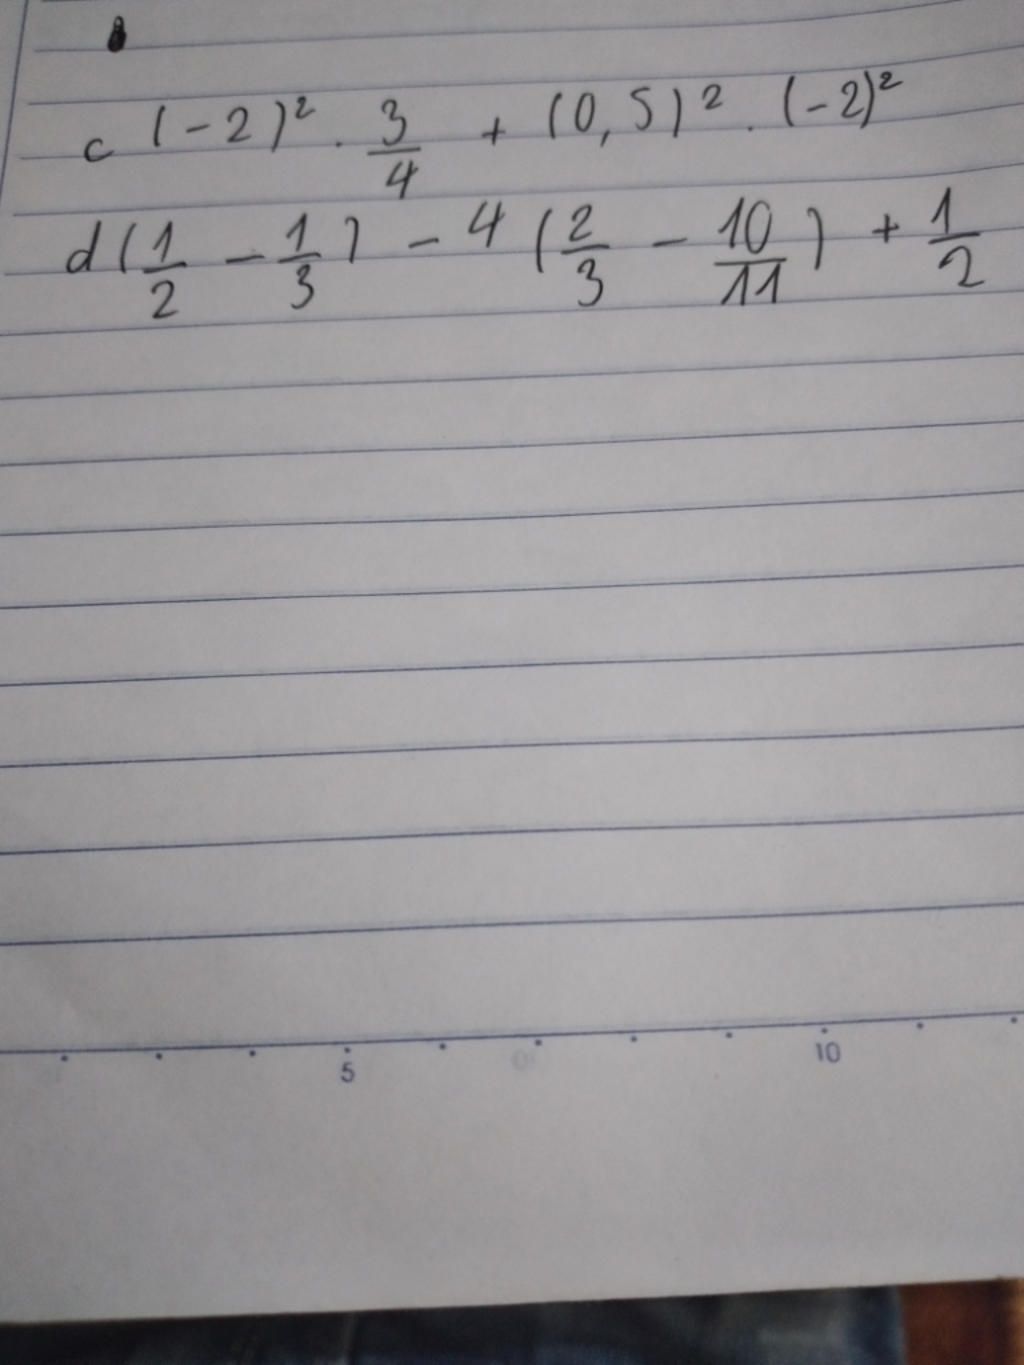 c (-2)² . 3/4 + (0,5)² . (-2)²
d (1/2 - 1/3) - 4 (2/3 - 10/11) + 1/2
5 10